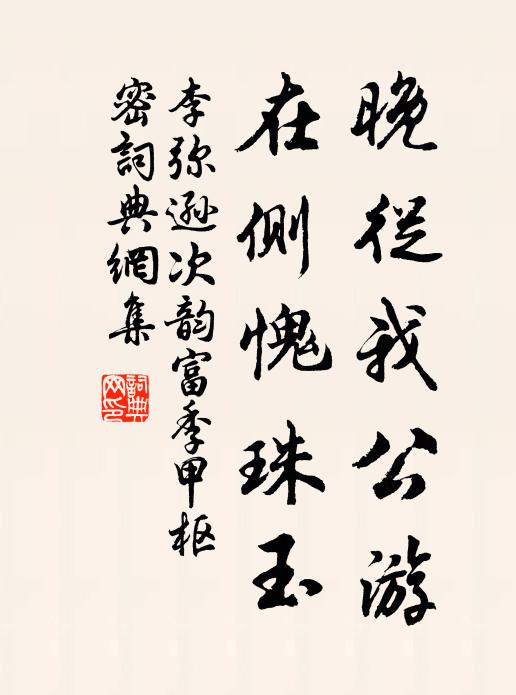 晚從我公游
在側愧珠玉
李弥遜次韵富季甲枢
密詞典網集
詞典
网印